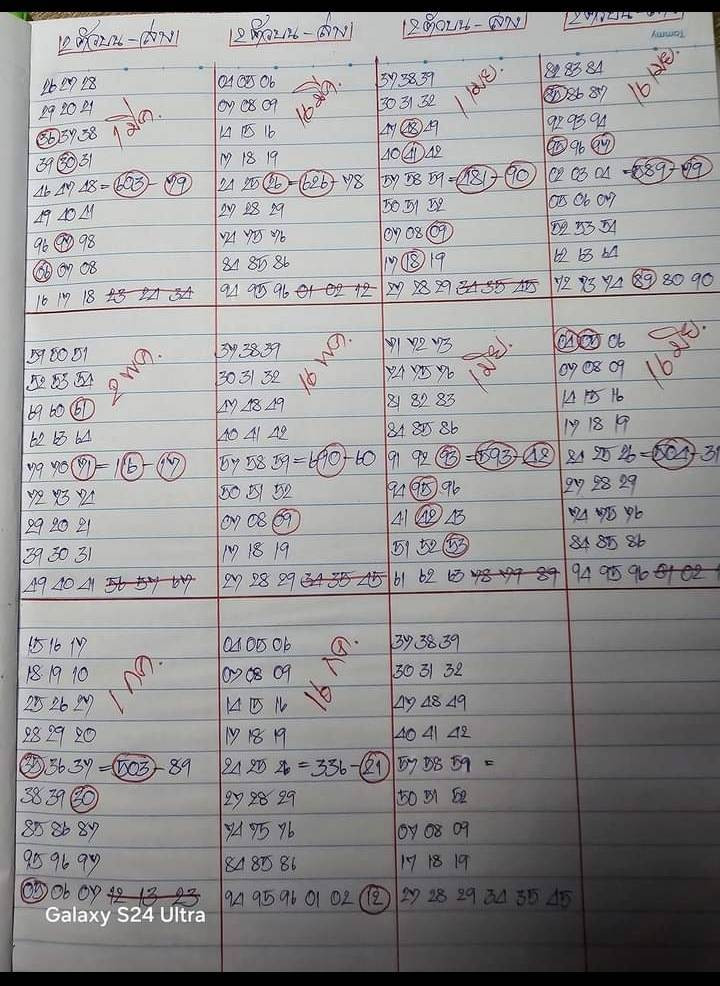 2 ตัวบน - ล่าง
26 27 28
29 20 21
1 มี.ค.
36 37 38
39 30 31
46 47 48 = 603 - 79
49 40 41
96 97 98
06 07 08
16 17 18 23 24 34
2 ตัวบน - ล่าง
04 05 06
16 มี.ค.
07 08 09
14 15 16
17 18 19
24 25 26 = 626 - 78
27 28 29
74 75 76
84 85 86
94 95 96 01 02 12
2 ตัวบน - ล่าง
37 38 39
1 เมย.
30 31 32
47 48 49
40 41 42
57 58 59 = 481 - 90
50 51 52
07 08 09
17 18 19
27 28 29 34 35 45
2 ตัวบน - ล่าง
Tommy
82 83 84
16 เมย.
85 86 87
92 93 94
95 96 97
02 03 04 = 589 - 79
05 06 07
52 53 54
62 63 64
72 73 74 89 80 90
59 50 51
2 พ.ค.
52 53 54
69 60 61
62 63 64
79 70 71 = 116 - 17
72 73 74
29 20 21
39 30 31
49 40 41 56 57 67
37 38 39
16 พ.ค.
30 31 32
47 48 49
40 41 42
57 58 59 = 690 - 60
50 51 52
07 08 09
17 18 19
27 28 29 34 35 45
71 72 73
1 มิย.
74 75 76
81 82 83
84 85 86
91 92 93 = 593 - 42
94 95 96
41 42 43
51 52 53
61 62 63 78 79 89
04 05 06
16 มิย.
07 08 09
14 15 16
17 18 19
24 25 26 = 504 - 31
27 28 29
74 75 76
84 85 86
94 95 96 01 02
15 16 17
1 กค.
18 19 10
25 26 27
28 29 20
35 36 37 = 503 - 89
38 39 30
85 86 87
95 96 97
05 06 07 12 13 23
04 05 06
16 กค.
07 08 09
14 15 16
17 18 19
24 25 26 = 336 - 21
27 28 29
74 75 76
84 85 86
94 95 96 01 02 12
37 38 39
30 31 32
47 48 49
40 41 42
57 58 59 =
50 51 52
07 08 09
17 18 19
27 28 29 34 35 45
Galaxy S24 Ultra